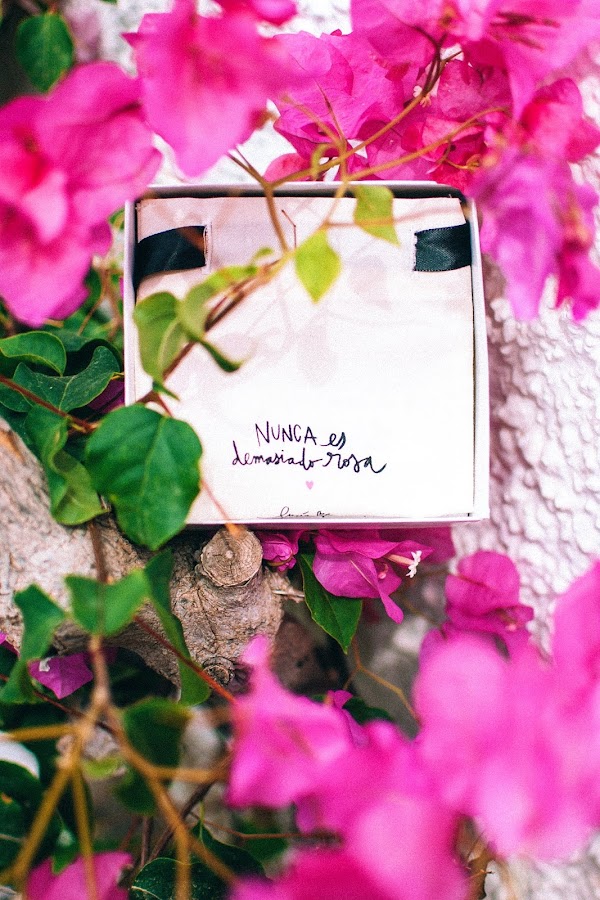 NUNCA es
demasiado rosa